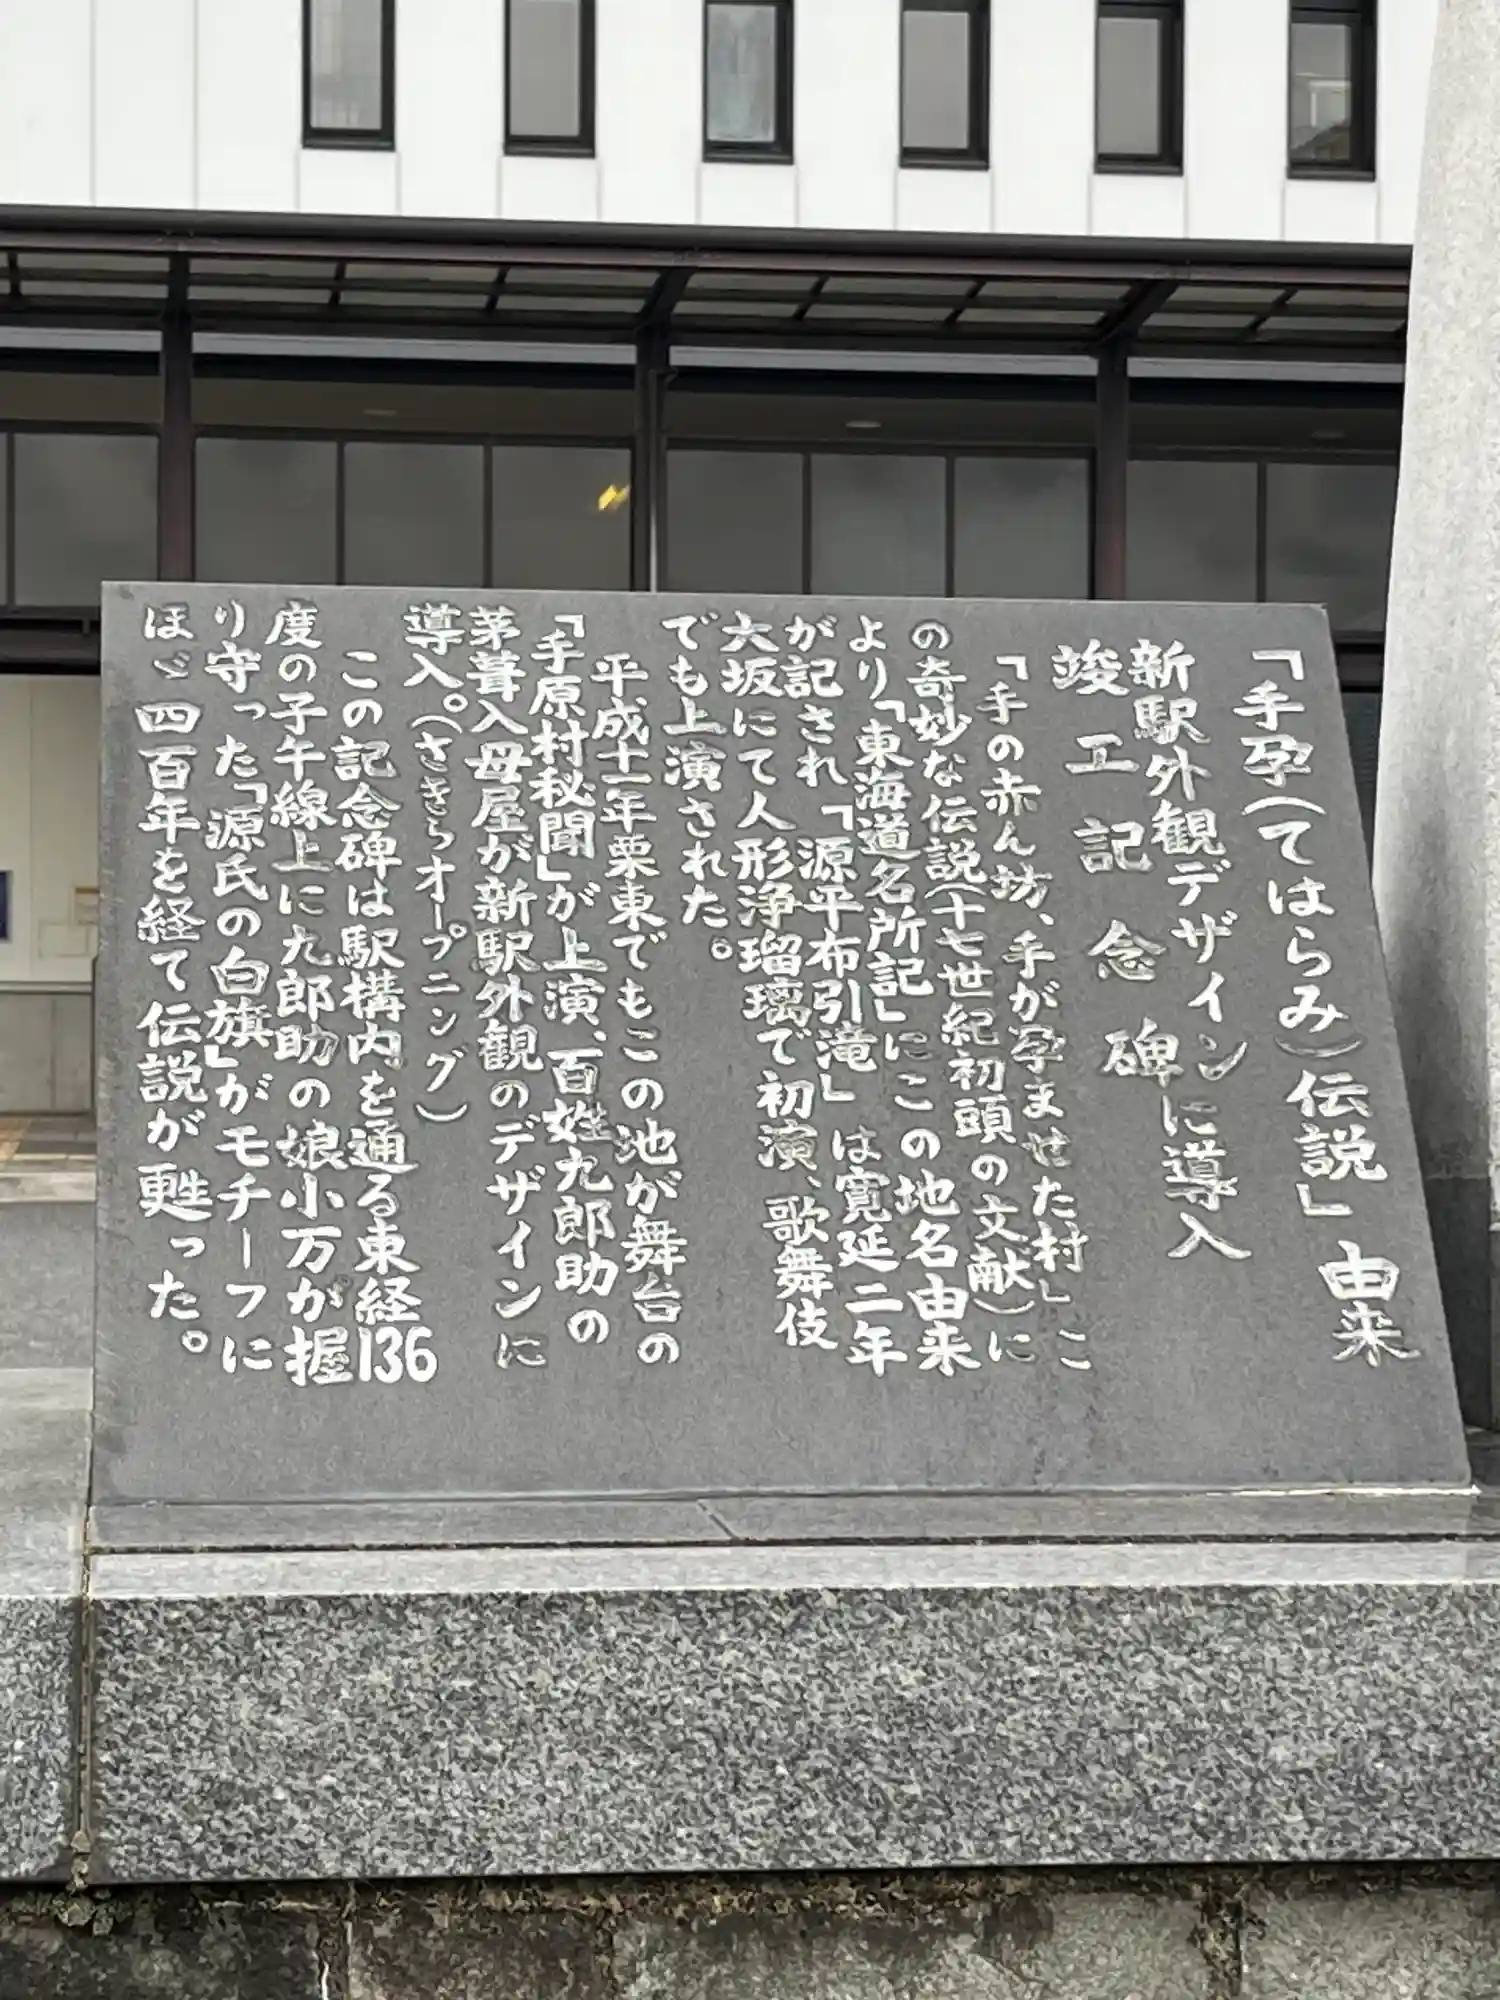 「手孕(てはらみ)伝説」由来
新駅外観デザインに導入
竣工記念碑
「手の赤ん坊、手が孕ませた村」こ
の奇妙な伝説(十七世紀初頭の文献)に
より「東海道名所記」にこの地名由来
が記され「源平布引滝」は寛延二年
大坂にて人形浄瑠璃で初演、歌舞伎
でも上演された。
平成十一年栗東でもこの池が舞台の
「手原村秘聞」が上演、百姓九郎助の
茅葺入母屋が新駅外観のデザインに
導入。(さきらオープニング)
この記念碑は駅構内を通る東経136
度の子午線上に九郎助の娘小万が握
り守った「源氏の白旗」がモチーフに
ほゞ四百年を経て伝説が甦った。